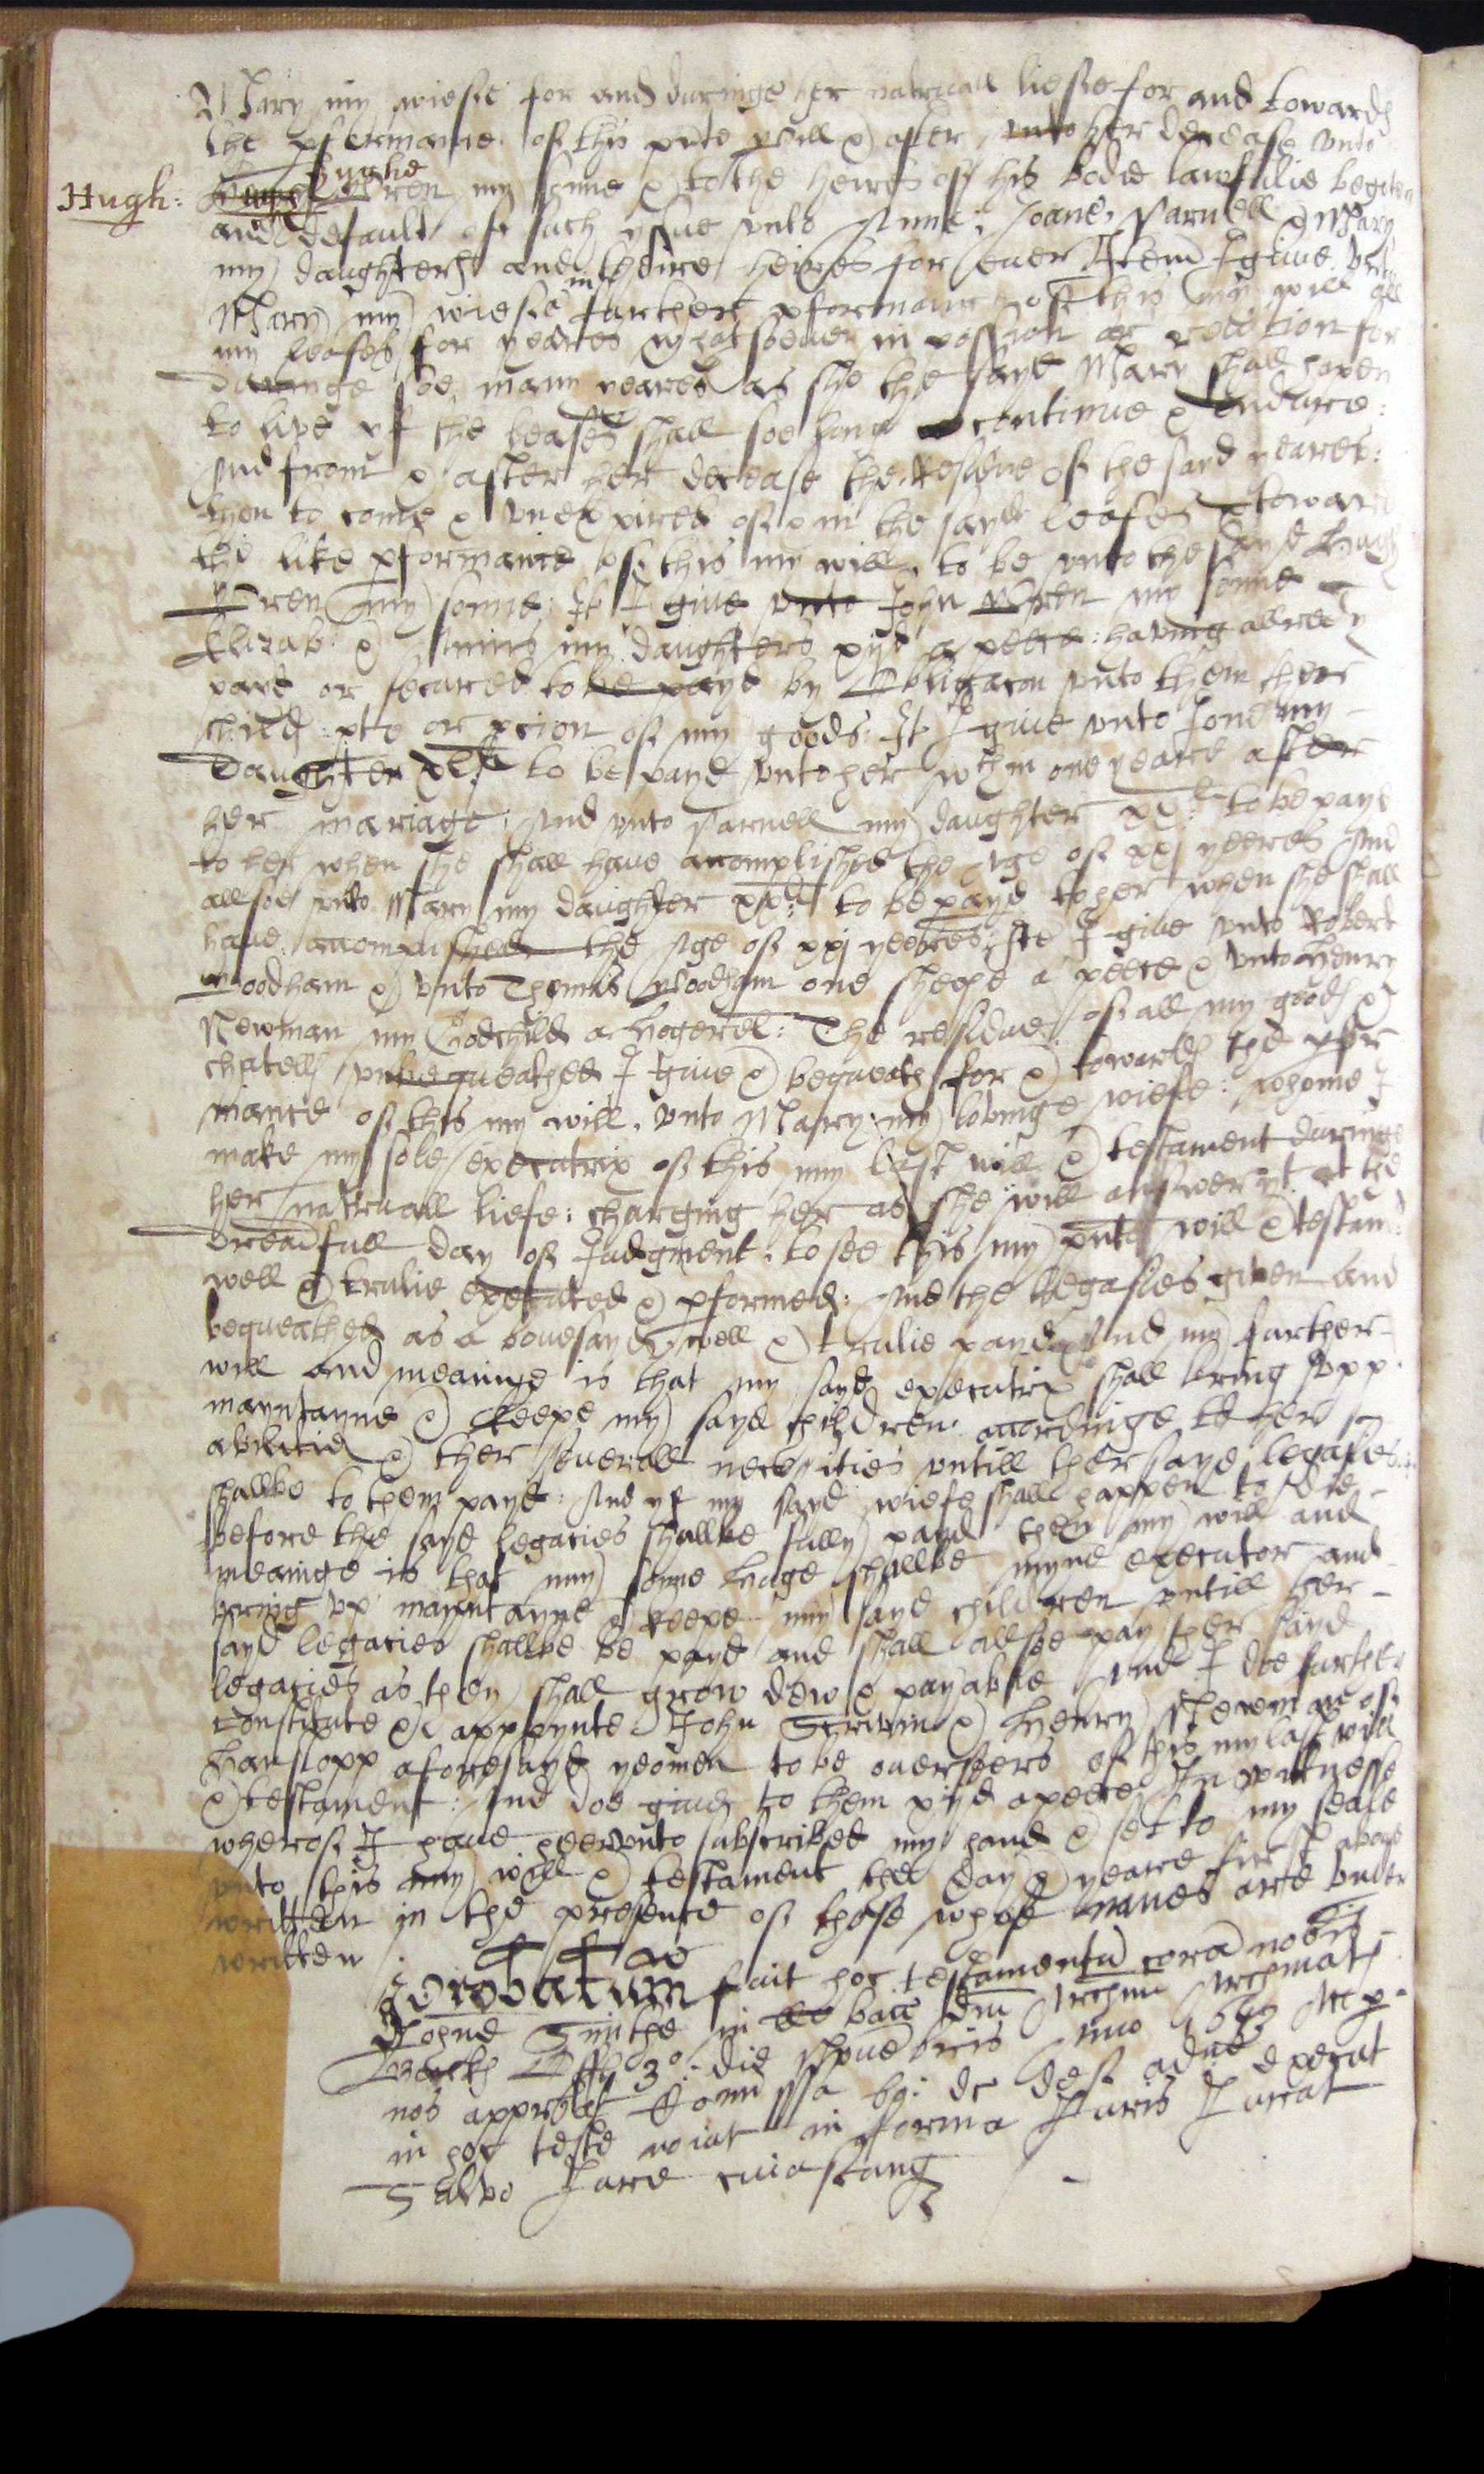 Mary my wiefe for and duringe her naturall liefe for and towardes
the pformance of this pnte will & after her decease unto
Hugh:
Hughe
Wren my sonne & to the heires of his bodie lawfulie begoten
and default of such yssue unto Anne, Joane, Parnell & Mary
my daughters and theire heires for ever Item I give unto
Mary my wiefe in further pformance of this my will all
my leases for yeares whatsoever in possion or revcion for
duringe soe many yeares as she the sayd Mary shall happen
to live yf the leases shall soe longe continue & endure:
And from & after her decease the residue of the sayd yeares:
then to come & unexpired of & in the sayd leases & towards
the like pformance of this my will, to be unto the sayd Hugh
Wren my sonne: It I give unto John Wren my sonne
Elizab: & my daughters xijd a peece: having allredy
payd or secured to be payd by Obligacon unto them ther
childs pte or pcion of my goods: It I give unto Jone my
Daughter to be payd unto her wthin one yeare after
her mariage: And unto Parnell my daughter xxli to be payd
to her when she shall have acomplished the age of xxj yeeres And
allsoe unto Mary my daughter xxli to be payd to her when she shall
have acomplished the age of xxj yeeres: Ite I give unto Robert
Woodham & unto Thomas Woodham one sheepe a peece & unto Henry
Newman my Godchild a hogerel: The residue of all my goods &
chatells unbequeathed I give & bequeath for & towards the pfor
mance of this my will, unto Mary my lovinge wiefe: whome I
make my sole executrix of this my last will & testament duringe
her naturall liefe: charging her as she will answer yt at the
dreadfull day of Judgment, to see this my pnte will & testam:
well & trulie executed & pformed: And the legasies given and
bequeathed as abovesayd well & trulie payd And my further
will and meaninge is that my sayd executrix shall bring upp
mayntayne & keepe my sayd children accordinge to her
abilitie & ther severall necessities untill ther sayd legasies
shallbe to them payd: And yf my sayd wiefe shall happen to die
before the sayd legacies shallbe fully payd then my will and
meaninge is that my sonne Hughe shallbe myne executor and
bring up mayntayne & keepe my sayd children untill ther
sayd legacies shallbe be payd and shall allsoe pay ther sayd
legacies as they shall grow dew & payable And I doe further
constitute & appoynte John Scrivin & Henry Newman of
Hanslopp aforesayd yeomen to be overseers of this my last will
& testament: And doe give to them xijd apeece In witnesse
wherof I have hereunto subscribed my hand & set to my seale
unto this my will & testament the day & yeare first above
written in the presence of those whose names are under
written
Probatum fuit hoc testamentu cora nobis
Johne Smithe in Archmat
Bucks Offli 3o: die Anno
nos approbat Comissa bo: de def adne execut
in hoc teste noiat in forma Juris Jurat
Salvo Jure cuiuscunq